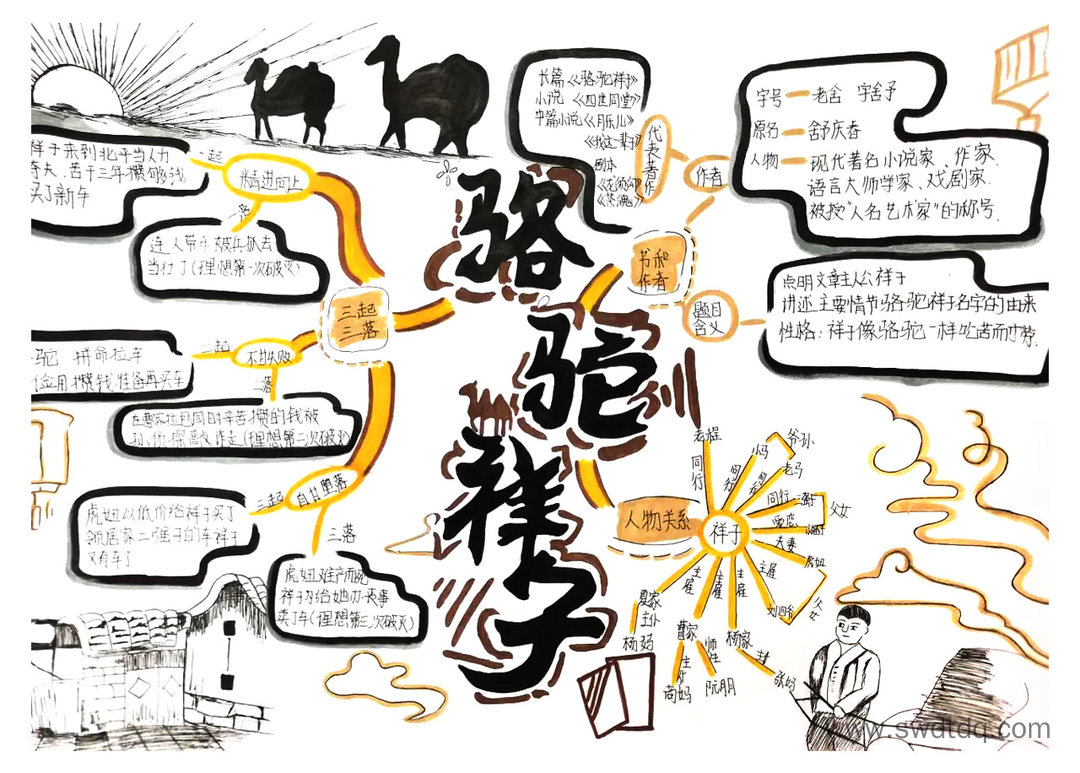 骆驼祥子
三起
三落
精进向上
一起
祥子来到北平当人力
车夫、苦干三年,攒够钱
买了新车
一落
连人带车被兵抓去
当作丁(理想第一次破灭)
不甘失败
二起
驼 拼命拉车
省吃俭用攒钱准备再买车
二落
在曹家拉包月时辛苦攒的钱被
孙侦探敲诈走(理想第二次破灭)
自甘堕落
三起
虎妞以低价给祥子买了
邻居家二强子的车祥子
又有车了
三落
虎妞难产而死
祥子为给她办丧事
卖了车(理想第三次破灭)
书和
作者
作者
代表著作
长篇《骆驼祥子》
小说 《四世同堂》
中篇小说《月牙儿》
《我这一辈子》
剧本
《龙须沟》
《茶馆》
字号 老舍 字舍予
原名 舒庆春
人物 现代著名小说家、作家
语言大师学家、戏剧家
被授"人名艺术家"的称号.
题目
含义
点明文章主人公祥子
讲述主要情节骆驼祥子名字的由来
性格:祥子像骆驼一样吃苦而耐劳.
人物关系
祥子
同行
老程
同行
小马
老马
爷孙
同行
二强子
暧恋
小福子
父女
夫妻
虎妞
主雇
刘四爷
父女
主雇
杨家
主雇
曹家
主雇
夏家
主仆
杨妈
主仆
高妈
师生
阮朋
张妈
www.swdtdq.com